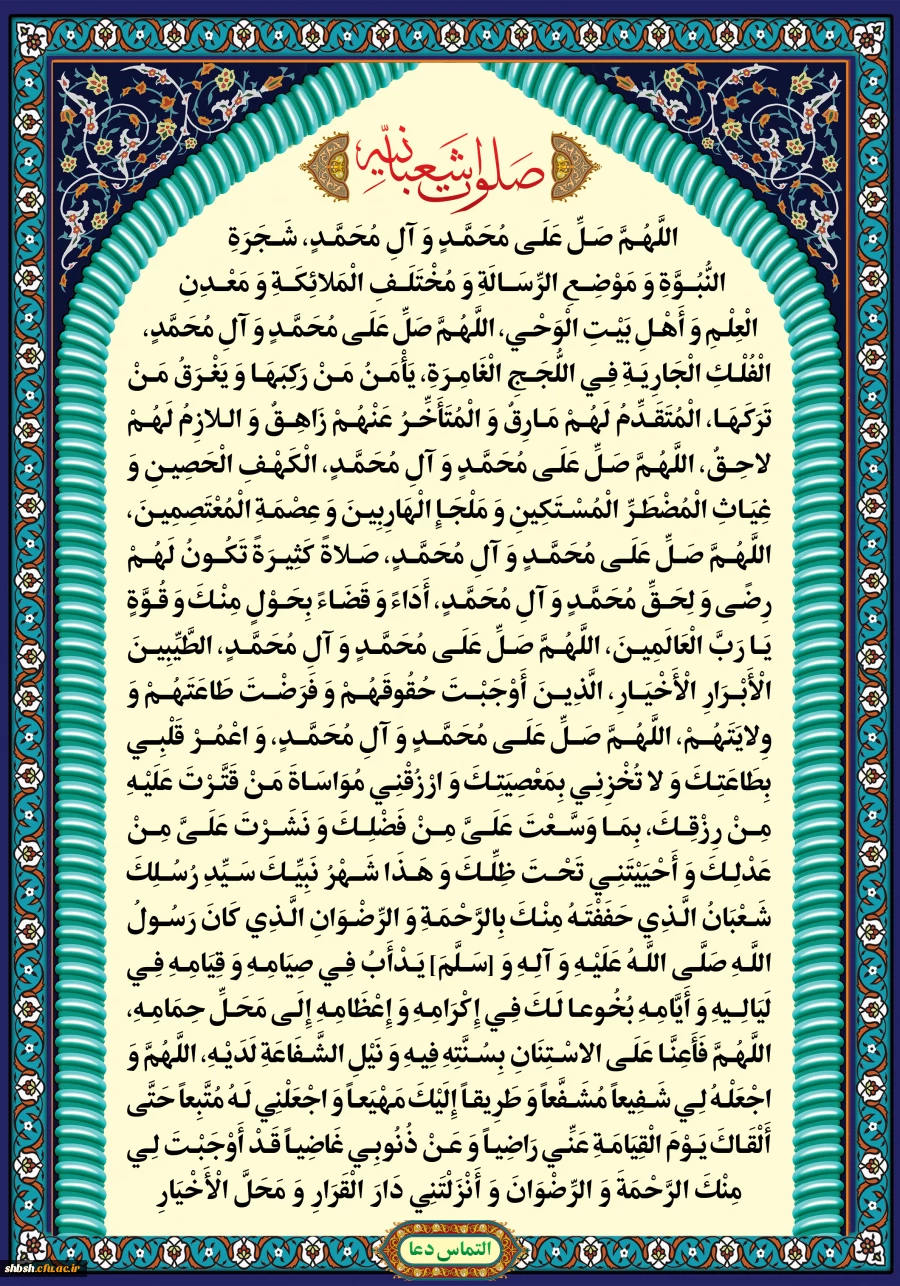 صلوات شعبانیه
اللَّهُمَّ صَلِّ عَلَى مُحَمَّدٍ وَ آلِ مُحَمَّدٍ، شَجَرَةِ
النُّبُوَّةِ وَ مَوْضِعِ الرِّسَالَةِ وَ مُخْتَلَفِ الْمَلائِكَةِ وَ مَعْدِنِ
الْعِلْمِ وَ أَهْلِ بَيْتِ الْوَحْيِ، اللَّهُمَّ صَلِّ عَلَى مُحَمَّدٍ وَ آلِ مُحَمَّدٍ،
الْفُلْكِ الْجَارِيَةِ فِي اللُّجَجِ الْغَامِرَةِ، يَأْمَنُ مَنْ رَكِبَهَا وَ يَغْرَقُ مَنْ
تَرَكَهَا، الْمُتَقَدِّمُ لَهُمْ مَارِقٌ وَ الْمُتَأَخِّرُ عَنْهُمْ زَاهِقٌ وَ اللازِمُ لَهُمْ
لاحِقٌ، اللَّهُمَّ صَلِّ عَلَى مُحَمَّدٍ وَ آلِ مُحَمَّدٍ، الْكَهْفِ الْحَصِينِ وَ
غِيَاثِ الْمُضْطَرِّ الْمُسْتَكِينِ وَ مَلْجَإِ الْهَارِبِينَ وَ عِصْمَةِ الْمُعْتَصِمِينَ،
اللَّهُمَّ صَلِّ عَلَى مُحَمَّدٍ وَ آلِ مُحَمَّدٍ، صَلاةً كَثِيرَةً تَكُونُ لَهُمْ
رِضًى وَ لِحَقِّ مُحَمَّدٍ وَ آلِ مُحَمَّدٍ، أَدَاءً وَ قَضَاءً بِحَوْلٍ مِنْكَ وَ قُوَّةٍ
يَا رَبَّ الْعَالَمِينَ، اللَّهُمَّ صَلِّ عَلَى مُحَمَّدٍ وَ آلِ مُحَمَّدٍ، الطَّيِّبِينَ
الْأَبْرَارِ الْأَخْيَارِ، الَّذِينَ أَوْجَبْتَ حُقُوقَهُمْ وَ فَرَضْتَ طَاعَتَهُمْ وَ
وِلايَتَهُمْ، اللَّهُمَّ صَلِّ عَلَى مُحَمَّدٍ وَ آلِ مُحَمَّدٍ، وَ اعْمُرْ قَلْبِي
بِطَاعَتِكَ وَ لا تُخْزِنِي بِمَعْصِيَتِكَ وَ ارْزُقْنِي مُوَاسَاةَ مَنْ قَتَّرْتَ عَلَيْهِ
مِنْ رِزْقِكَ، بِمَا وَسَّعْتَ عَلَيَّ مِنْ فَضْلِكَ وَ نَشَرْتَ عَلَيَّ مِنْ
عَدْلِكَ وَ أَحْيَيْتَنِي تَحْتَ ظِلِّكَ وَ هَذَا شَهْرُ نَبِيِّكَ سَيِّدِ رُسُلِكَ
شَعْبَانُ الَّذِي حَفَفْتَهُ مِنْكَ بِالرَّحْمَةِ وَ الرِّضْوَانِ الَّذِي كَانَ رَسُولُ
اللَّهِ صَلَّى اللَّهُ عَلَيْهِ وَ آلِهِ وَ [سَلَّمَ] يَدْأَبُ فِي صِيَامِهِ وَ قِيَامِهِ فِي
لَيَالِيهِ وَ أَيَّامِهِ بُخُوعا لَكَ فِي إِكْرَامِهِ وَ إِعْظَامِهِ إِلَى مَحَلِّ حِمَامِهِ،
اللَّهُمَّ فَأَعِنَّا عَلَى الاسْتِنَانِ بِسُنَّتِهِ فِيهِ وَ نَيْلِ الشَّفَاعَةِ لَدَيْهِ، اللَّهُمَّ وَ
اجْعَلْهُ لِي شَفِيعاً مُشَفَّعاً وَ طَرِيقاً إِلَيْكَ مَهْيَعاً وَ اجْعَلْنِي لَهُ مُتَّبِعاً حَتَّى
أَلْقَاكَ يَوْمَ الْقِيَامَةِ عَنِّي رَاضِياً وَ عَنْ ذُنُوبِي غَاضِياً قَدْ أَوْجَبْتَ لِي
مِنْكَ الرَّحْمَةَ وَ الرِّضْوَانَ وَ أَنْزَلْتَنِي دَارَ الْقَرَارِ وَ مَحَلَّ الْأَخْيَارِ
التماس دعا
shbsh.cfu.ac.ir